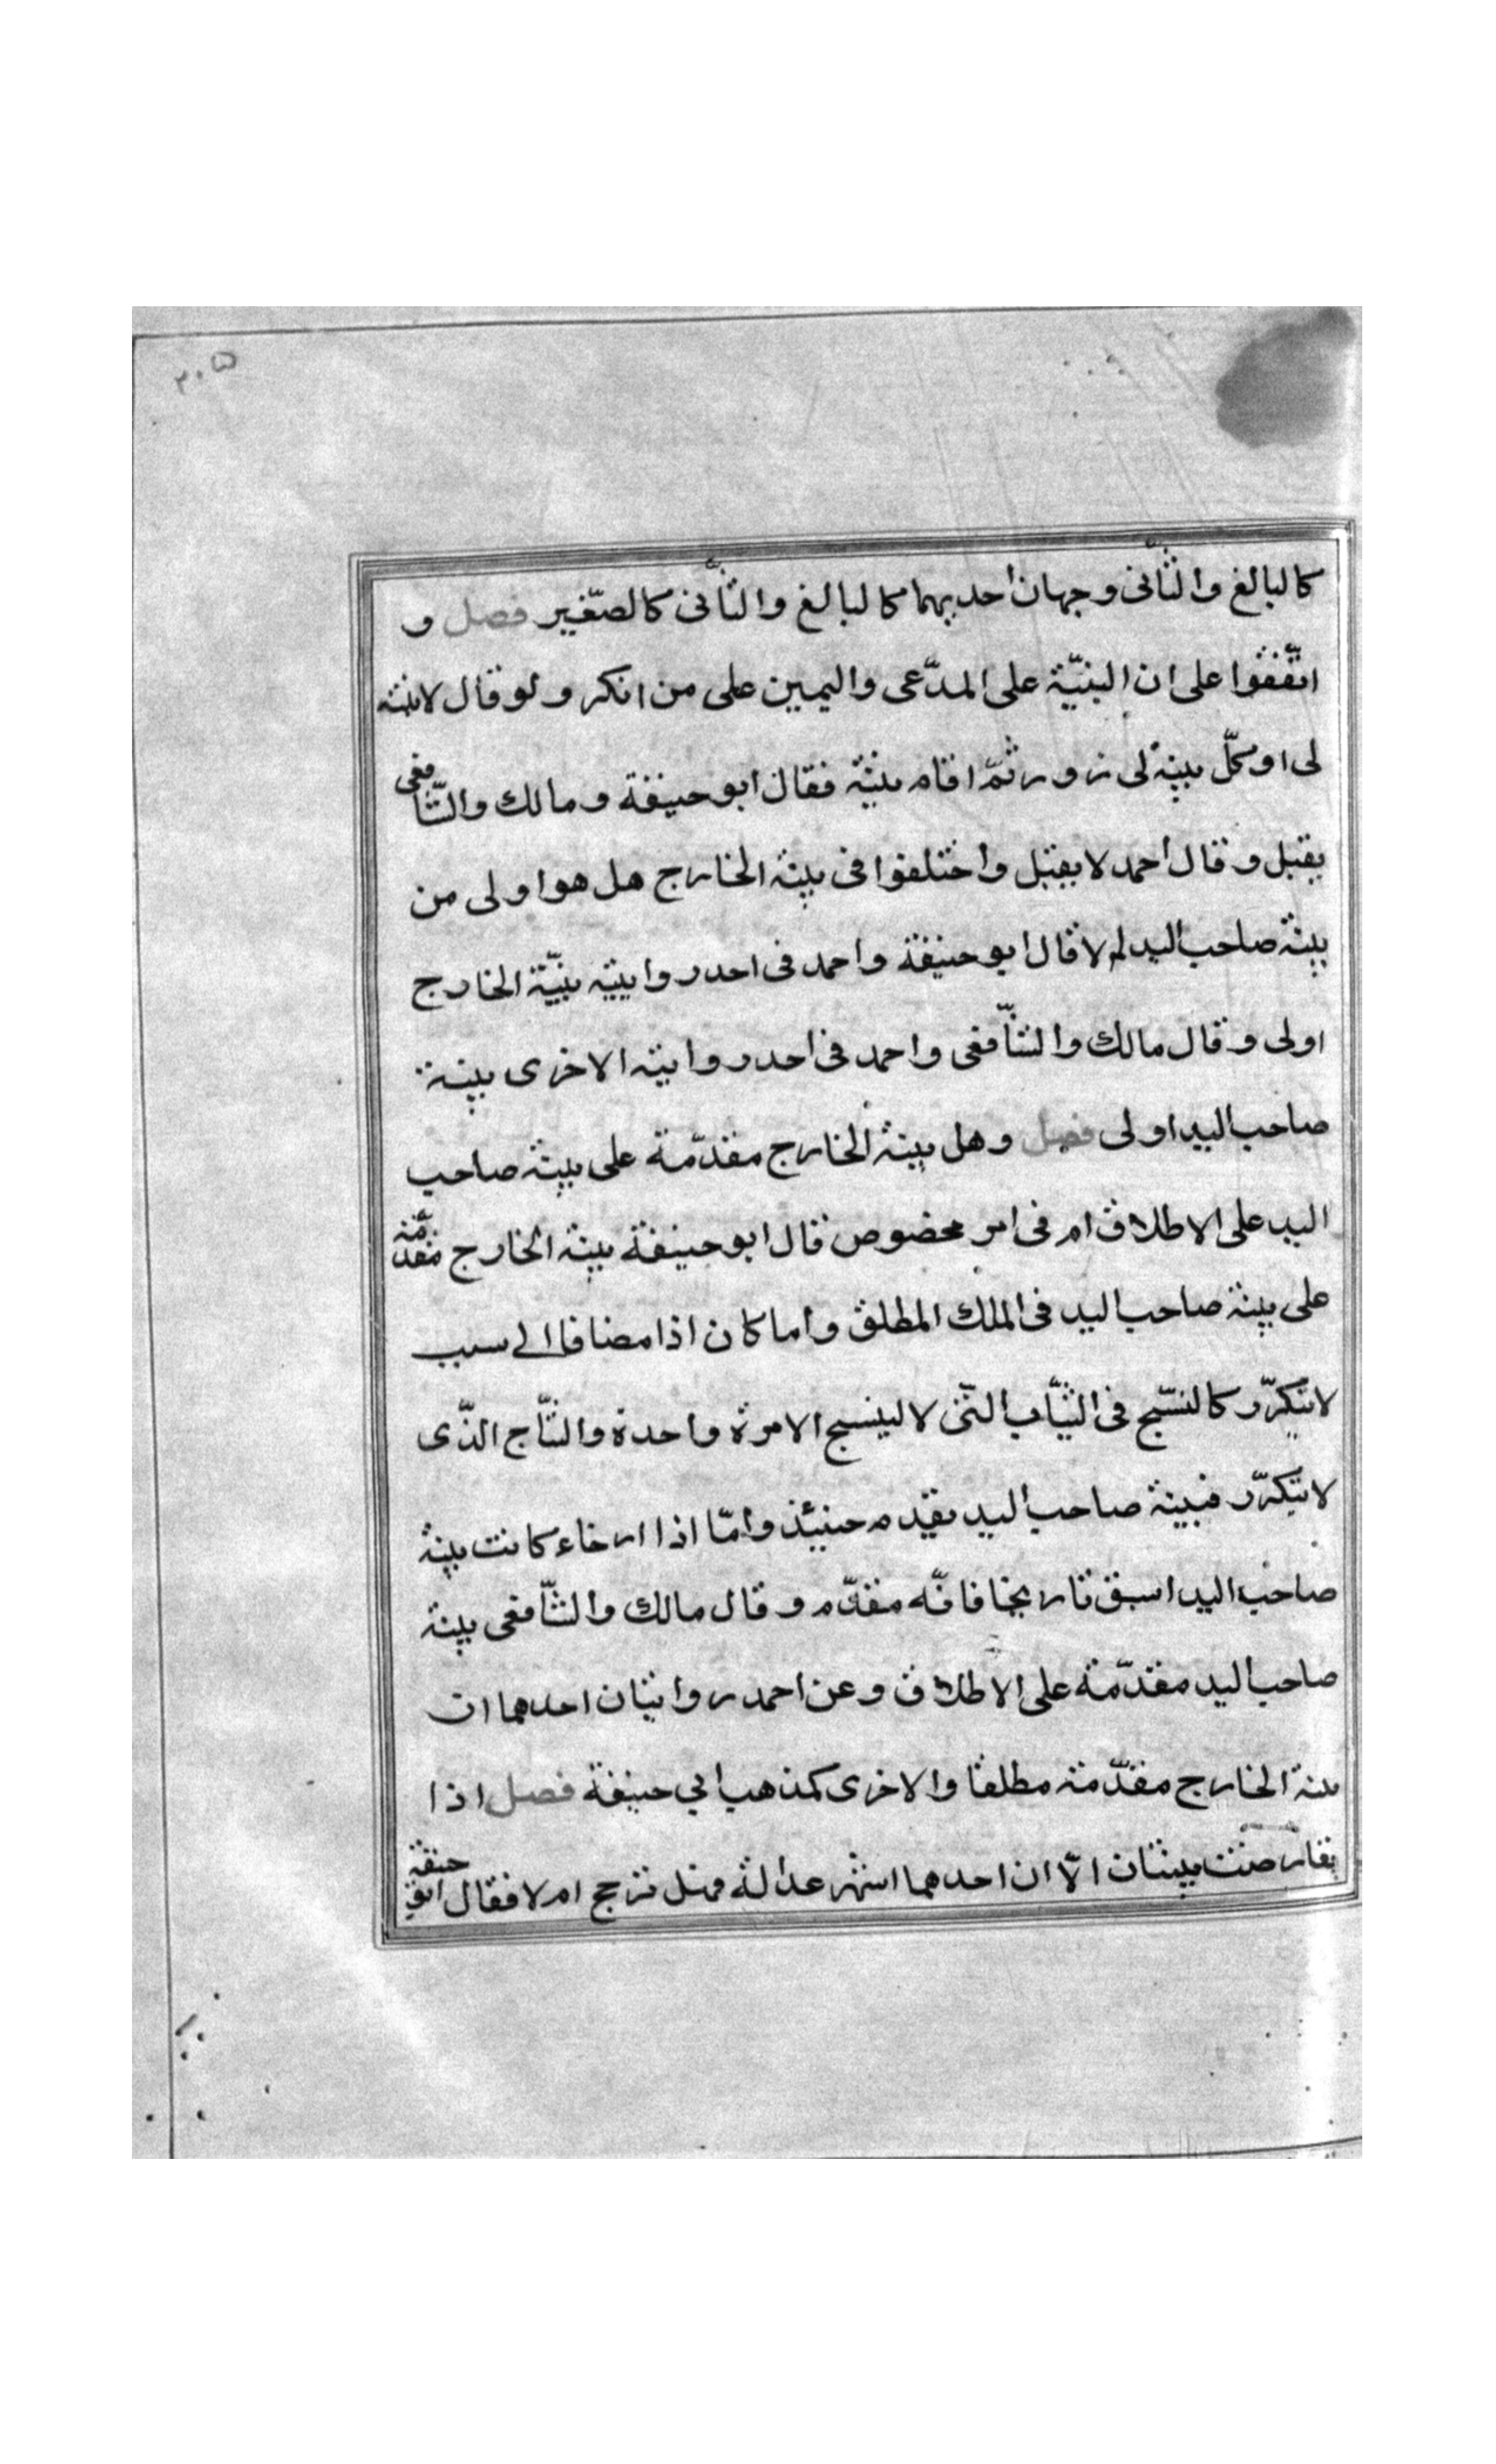 ٣٠٥
كالبالغ والثّانى وجهان احديهما كالبالغ والثّانى كالصّغير فصل و
اتّفقوا على ان البنيّة على المدّعى واليمين على من انكر ولو قال لابينة
لى او كلّ بينة لى زور ثمّ اقام بنيّة فقال ابو حنيفة ومالك والشّافعى
يقبل وقال احمد لا يقبل واختلفوا فى بينة الخارج هل هو اولى من
بينة صاحب اليد لم لا قال ابو حنيفة واحمد فى احدر وايتيه بنيّة الخارج
اولى وقال مالك والشّافعى واحمد فى احدر وايته الاخرى بينة
صاحب اليد اولى فصل وهل بينة الخارج مقدّمة على بينة صاحب
اليد على الاطلاق ام فى امر مخصوص قال ابو حنيفة بينة الخارج مقدّمة
على بينة صاحب اليد فى الملك المطلق واما كان اذا مضافا الى سبب
لا يتكرّر كالنّسج فى الثيّاب التّى لا لينسج الا مرة واحدة والنتّاج الذّى
لا يتكرّر فبينة صاحب اليد يقدم حنيئذ وامّا اذا ارخاء كانت بينة
صاحب اليد اسبق تاريخا فانّه مقدّم وقال مالك والشّافعى بينة
صاحب اليد مقدّمة على الاطلاق وعن احمد روايتان احدهما ان
بينة الخارج مقدّمة مطلقا والاخرى كمذهب ابي حنيفة فصل اذا
تعارضت بينتان الاّ ان احدهما اشهر عدالة فهل ترجح ام لا فقال ابو حنيفة